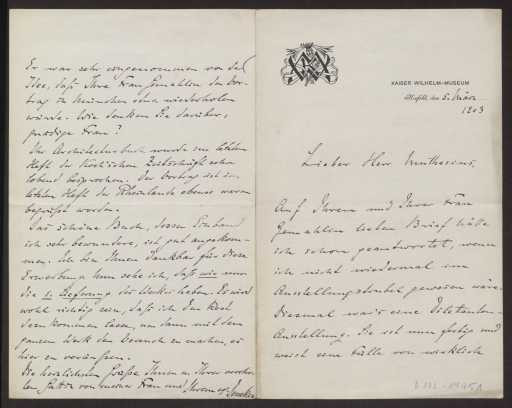 KAISER WILHELM-MUSEUM
Krefeld, den 5. März
1903
Lieber Herr Muthesius,
Auf Ihren und Ihrer Frau
Gemahlin lieben Brief hätte
ich schon geantwortet, wenn
ich nicht wiedermal im
Ausstellungstrubel gewesen wäre.
Diesmal war's eine Dilettanten-
Ausstellung. Sie ist nun fertig und
weist eine Fülle von wirklich
Er war sehr eingenommen von der
Idee, daß Ihre Frau Gemahlin den Vor-
trag in München wiederholen
würde. Wie denken Sie darüber,
gnädige Frau?
Ihr Buch wurde im letzten
Heft der Zeitschrift sehr
lobend besprochen. Der Vortrag ist im
letzten Heft der Rheinlande ebenso warm
begrüßt worden.
Das schöne Buch, dessen Einband
ich sehr bewundere, ist gut angekom-
men. Ich bin Ihnen dankbar für diese
Erwerbung. Nun sehe ich, daß wir nur
die II. Lieferung des Werkes haben. Es wird
wohl richtig sein, daß ich den Rest
kommen lasse, um dann mit dem
ganzen Werk den Besuch zu machen, es
hier zu veräußern.
Die herzlichsten Grüße Ihnen u. Ihrer verehr-
ten Gattin von meiner Frau und Ihrem erg. Deneken